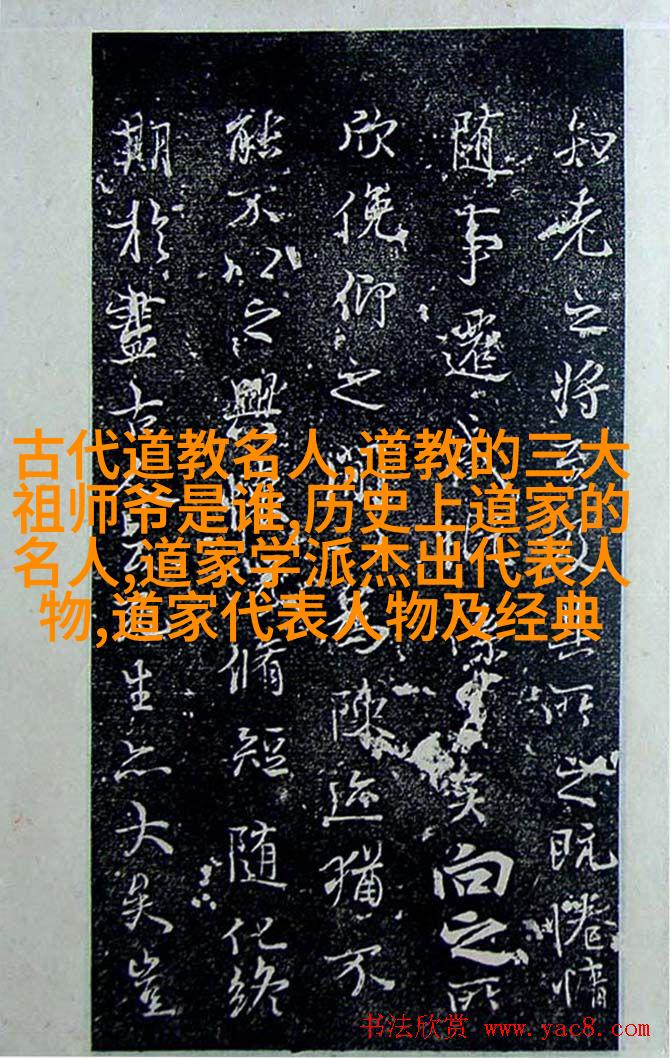 知老之將所之既惓情
随事遷係矣向之所
欣俛仰之為陳迹猶不
能不以之興脩短随化終
期於盡古生亦大矣豈
古代道教名人,道教的三大
祖师爷是谁,历史上道家的
名人,道家学派杰出代表人
物,道家代表人物及经典
书法欣赏 www.yac8.com